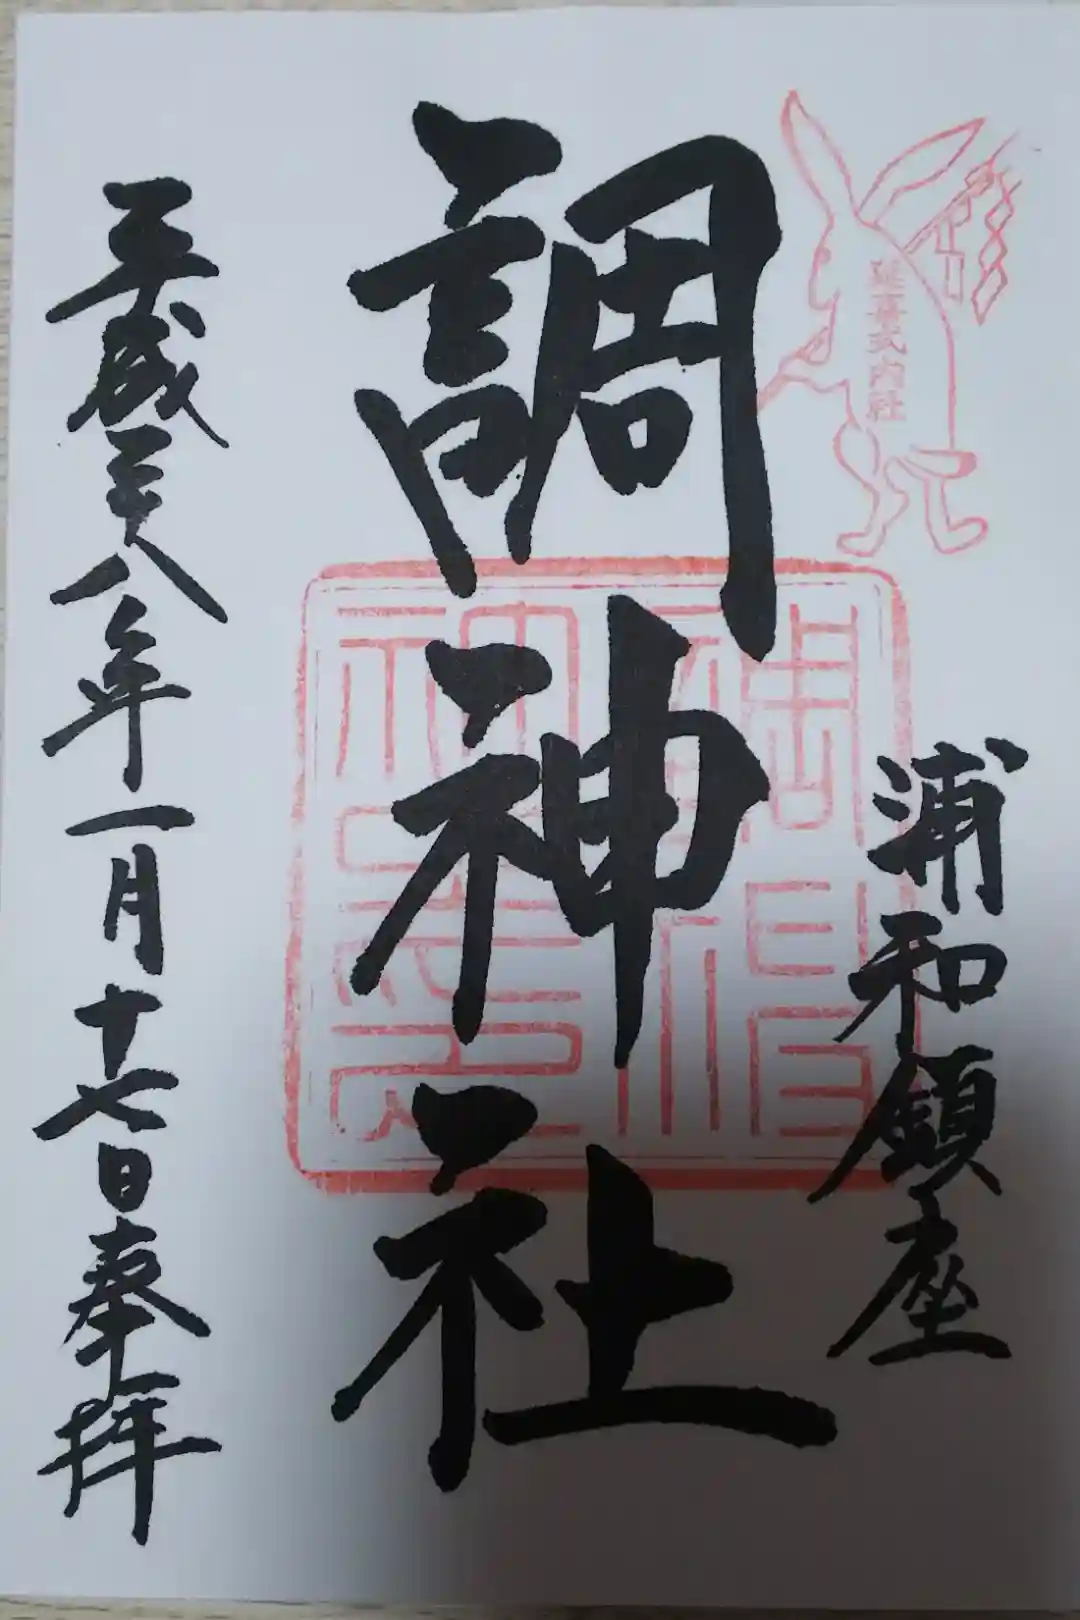 延喜式内社
浦和鎮座
調神社
平成二十八年一月十七日奉拝